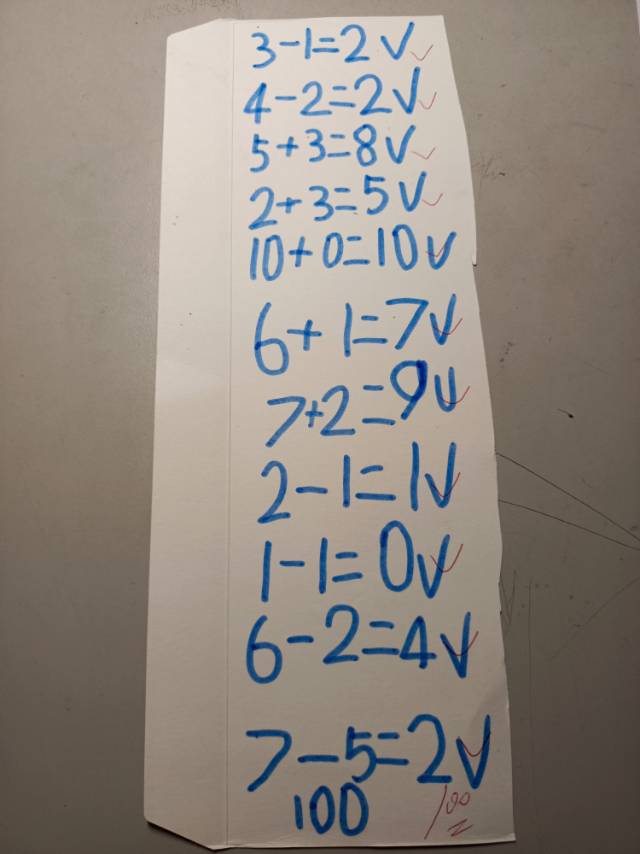 3-1=2 √ ✓
4-2=2√ ✓
5+3=8√ ✓
2+3=5√ ✓
10+0=10√ ✓
6+1=7√ ✓
7+2=9√ ✓
2-1=1√ ✓
1-1=0√ ✓
6-2=4√ ✓
7-5=2√ ✓
100 100